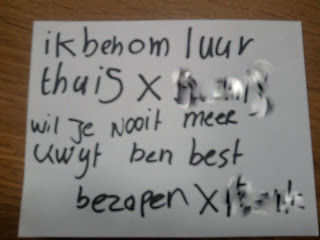 ik behom luur
thuis X
wil je nooit meer
kwyt ben best
bezopen X